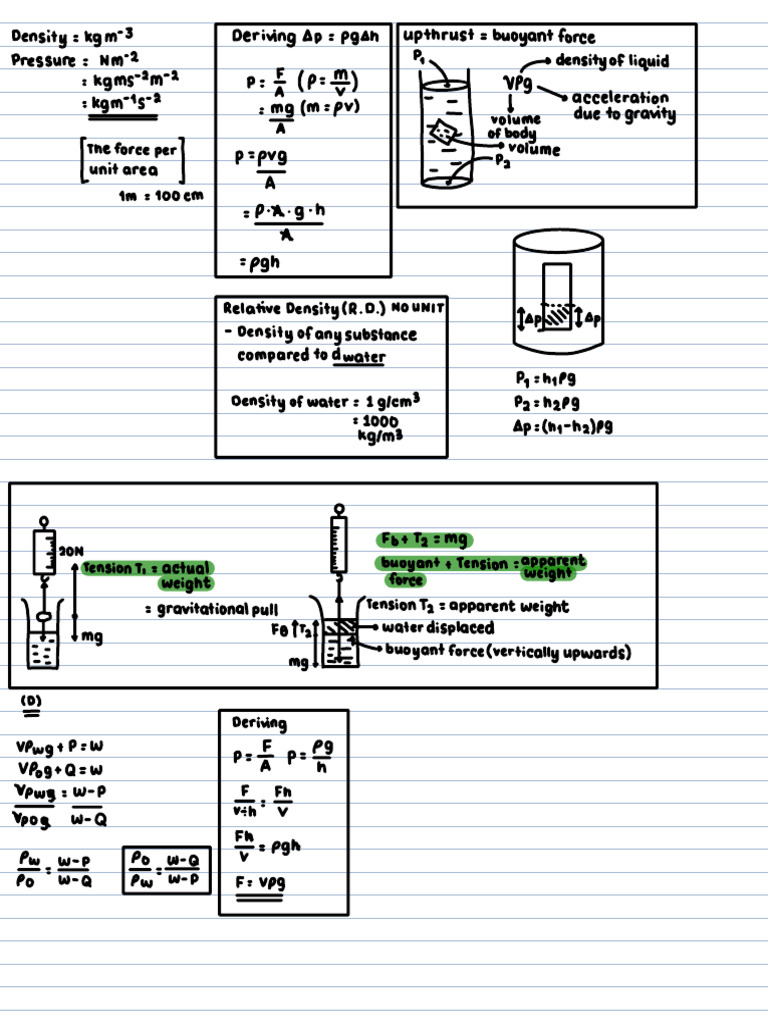 Density = kg m⁻³
Pressure = Nm⁻²
= kgms⁻²m⁻²
= kgm⁻¹s⁻²
[The force per
unit area]
1m = 100 cm
Deriving Δp = ρgΔh
P = F/A (ρ = m/v)
= mg/A (m = ρv)
P = ρvg/A
= ρ·A·g·h/A
= ρgh
upthrust = buoyant force
P₁
density of liquid
vρg
acceleration
due to gravity
volume
of body
volume
P₂
Δp
Δp
P₁ = h₁ρg
P₂ = h₂ρg
Δp = (h₁-h₂)ρg
Relative Density (R.D.) NO UNIT
- Density of any substance
compared to dwater
Density of water = 1 g/cm³
= 1000
kg/m³
20N
Tension T₁ = actual
weight
= gravitational pull
mg
Fb + T₂ = mg
buoyant + Tension = apparent
force weight
Tension T₂ = apparent weight
FB T₂
water displaced
buoyant force (vertically upwards)
mg
(D)
Vρwg + P = W
Vρog + Q = W
Vρwg/Vρog = W-P/W-Q
ρw/ρo = W-P/W-Q
ρo/ρw = W-Q/W-P
Deriving
P = F/A P = ρg/h
F/v÷h = Fh/V
Fh/V = ρgh
F = Vρg